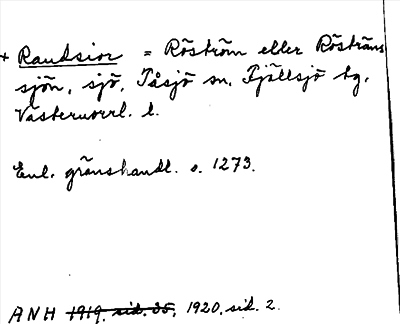 + Raudsior = Röström eller Röströms
sjön, sjö, Tåsjö sn, Fjällsjö tg,
Västernorrl. l.
Enl. gränshandl. s. 1273.
ANH 1919, sid. 35, 1920, sid. 2.